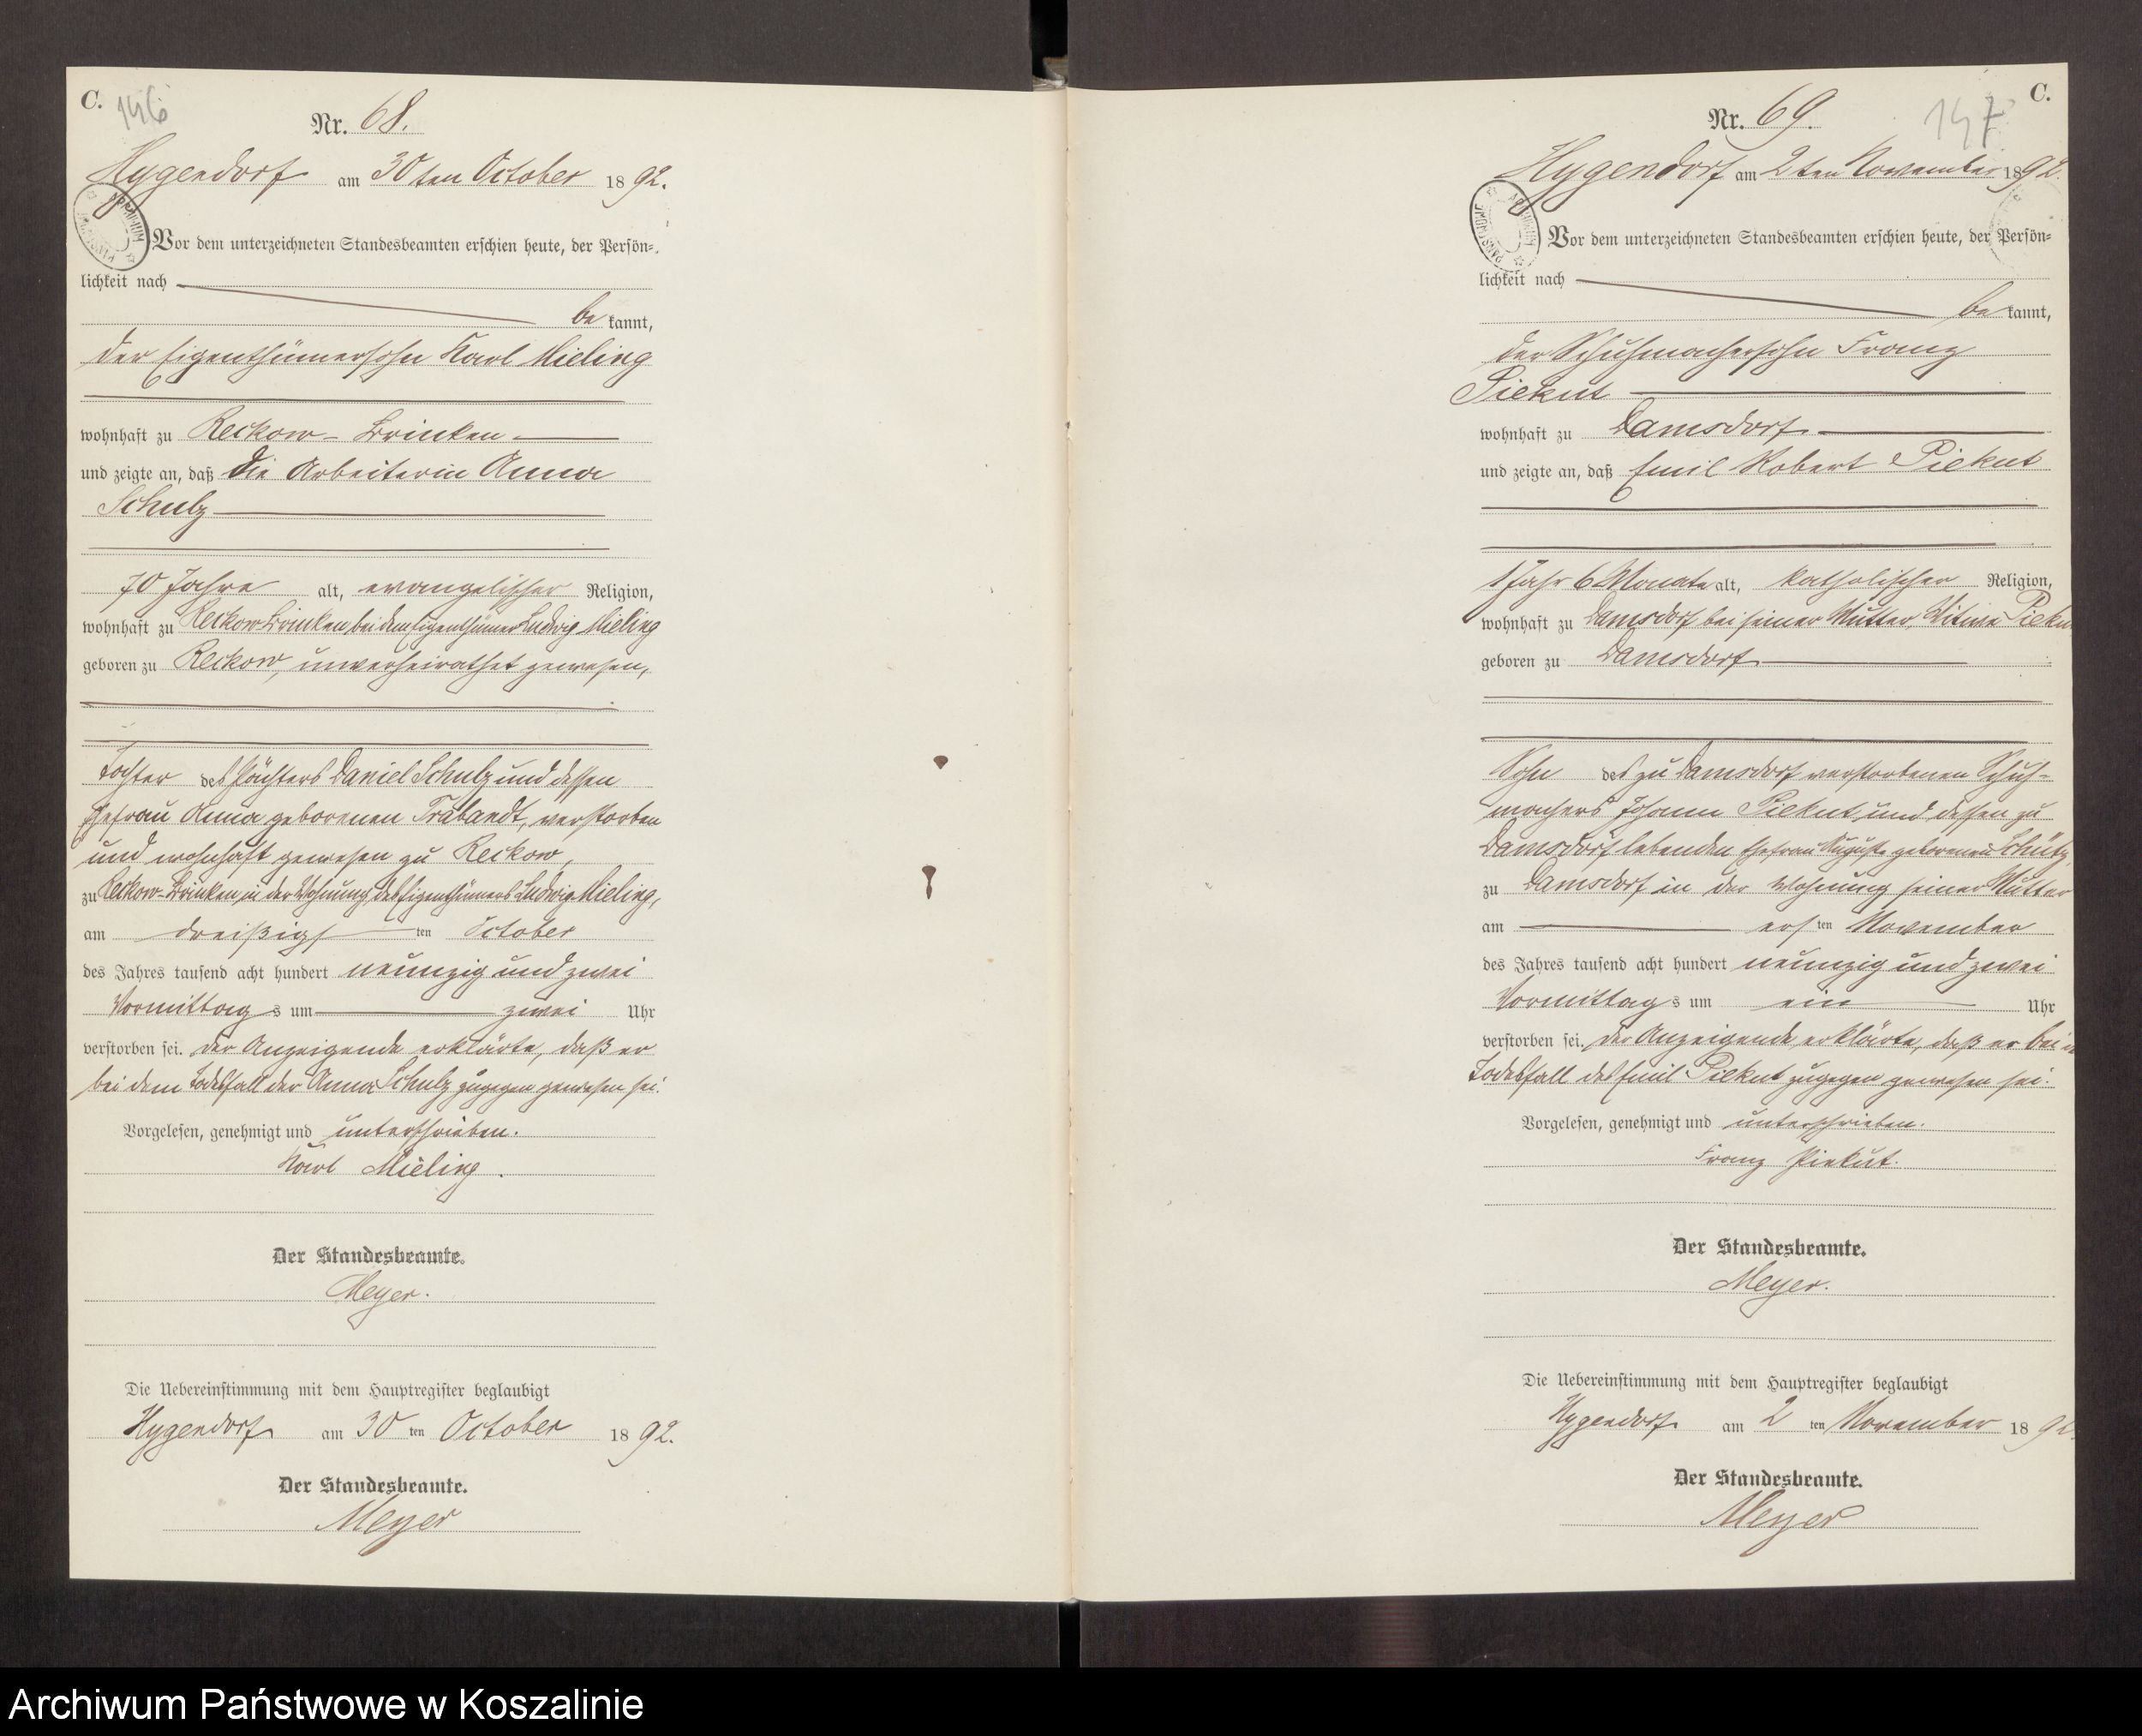 C. 146
Nr. 68.
Hygendorf am 30ten October 1892.
Vor dem unterzeichneten Standesbeamten erschien heute, der Persön-
lichkeit nach
be kannt,
der Eigenthümersohn Karl Mieling
wohnhaft zu Reckow-Brinken
und zeigte an, daß die Arbeiterin Anna
Schulz
70 Jahre alt, evangelischer Religion,
wohnhaft zu Reckow Brinken bei dem Eigenthümer Ludwig Mieling
geboren zu Reckow, unverheirathet gewesen,
Tochter des Pächters Daniel Schulz und dessen
Ehefrau Anna geborenen Trabandt, verstorben
und wohnhaft gewesen zu Reckow,
zu Reckow-Brinken, in der Wohnung des Eigenthümers Ludwig Mieling,
am dreißigs ten October
des Jahres tausend acht hundert neunzig und zwei
Vormittag s um zwei Uhr
verstorben sei. Der Anzeigende erklärte, daß er
bei dem Todesfall der Anna Schulz zugegen gewesen sei.
Vorgelesen, genehmigt und unterschrieben.
Karl Mieling.
Der Standesbeamte.
Meyer.
Die Uebereinstimmung mit dem Hauptregister beglaubigt
Hygendorf am 30 ten October 1892.
Der Standesbeamte.
Meyer
147 C.
Nr. 69.
Hygendorf am 2ten November 1892.
Vor dem unterzeichneten Standesbeamten erschien heute, der Persön-
lichkeit nach
be kannt,
der Schuhmachersohn Franz
Piekut
wohnhaft zu Damsdorf
und zeigte an, daß Emil Robert Piekut
1 Jahr 6 Monate alt, katholischer Religion,
wohnhaft zu Damsdorf bei seiner Mutter, Witwe Pieku
geboren zu Damsdorf
Sohn des zu Damsdorf verstorbenen Schuh-
machers Johann Piekut und dessen zu
Damsdorf lebenden Ehefrau Auguste geborenen Schütz
zu Damsdorf in der Wohnung seiner Mutter
am ers ten November
des Jahres tausend acht hundert neunzig und zwei
Vormittag s um ein Uhr
verstorben sei. Der Anzeigende erklärte, daß er bei
Todesfall des Emil Piekut zugegen gewesen sei.
Vorgelesen, genehmigt und unterschrieben.
Franz Piekut.
Der Standesbeamte.
Meyer.
Die Uebereinstimmung mit dem Hauptregister beglaubigt
Hygendorf am 2 ten November 1892.
Der Standesbeamte.
Meyer
Archiwum Państwowe w Koszalinie